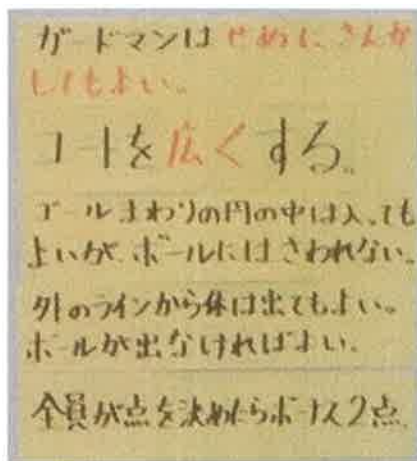 ガードマンは せめに さんか
してもよい。
コートを広くする。
ゴールまわりの円の中は入っても
よいが、ボールにはさわれない。
外のラインから体は出てもよい。
ボールが出なければよい。
全員が点を決めたらボーナス2点